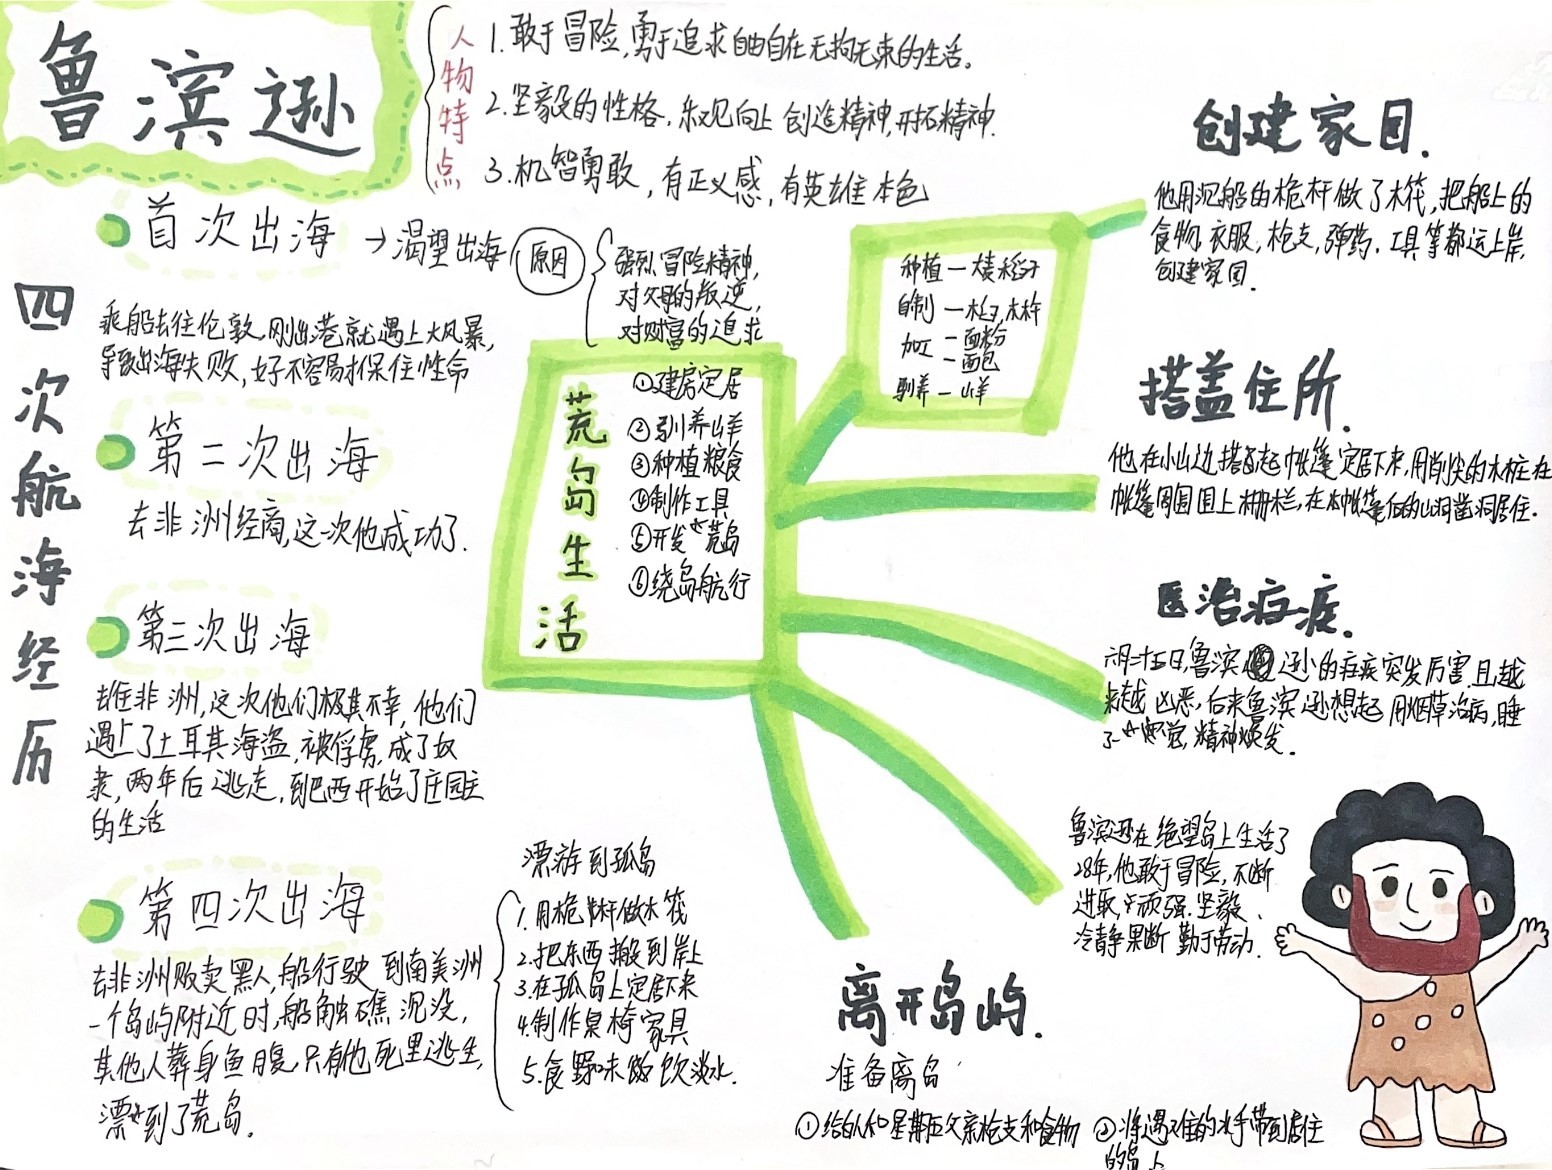 鲁滨逊
人物特点
1.敢于冒险,勇于追求自由自在无拘无束的生活。
2.坚毅的性格,乐观向上 创造精神,开拓精神.
3.机智勇敢,有正义感,有英雄本色
四次航海经历
首次出海 →渴望出海
原因
强烈冒险精神,
对父母的叛逆,
对财富的追求
乘船去往伦敦,刚出港就遇上大风暴,
导致出海失败,好不容易才保住性命
第二次出海
去非洲经商,这次他成功了.
第三次出海
去往非洲,这次他们极其不幸,他们
遇上了土耳其海盗,被俘虏,成了奴
隶,两年后逃走,到巴西开始了庄园主
的生活
第四次出海
去非洲贩卖黑人,船行驶到南美洲
一个岛屿附近时,船触礁沉没,
其他人葬身鱼腹,只有他死里逃生,
漂到了荒岛.
漂游到孤岛
1.用桅杆做木筏
2.把东西搬到岸上
3.在孤岛上定居下来
4.制作桌椅家具
5.食野味 饮淡水.
荒岛生活
①建房定居
②驯养山羊
③种植粮食
④制作工具
⑤开发荒岛
绕岛航行
种植—大麦稻子
自制—木臼,木杵
加工—面粉
—面包
驯养—山羊
创建家园.
他用沉船的桅杆做了木筏,把船上的
食物,衣服,枪支,弹药,工具等都运上岸,
创建家园.
搭盖住所.
他在小山边搭起帐篷定居下来,用削尖的木桩在
帐篷周围围上栅栏,在帐篷后的山洞凿洞居住.
医治疟疾.
六月二十五日,鲁滨逊的疟疾突发厉害,且越
来越凶恶,后来鲁滨逊想起用烟草治病,睡
了一觉,精神焕发.
鲁滨逊在绝望岛上生活了
28年,他敢于冒险,不断
进取,顽强.坚毅、
冷静果断 勤于劳动.
离开岛屿.
准备离岛
①给 和星期五父亲枪支和食物
②将遇难的水手带到居住
的岛上